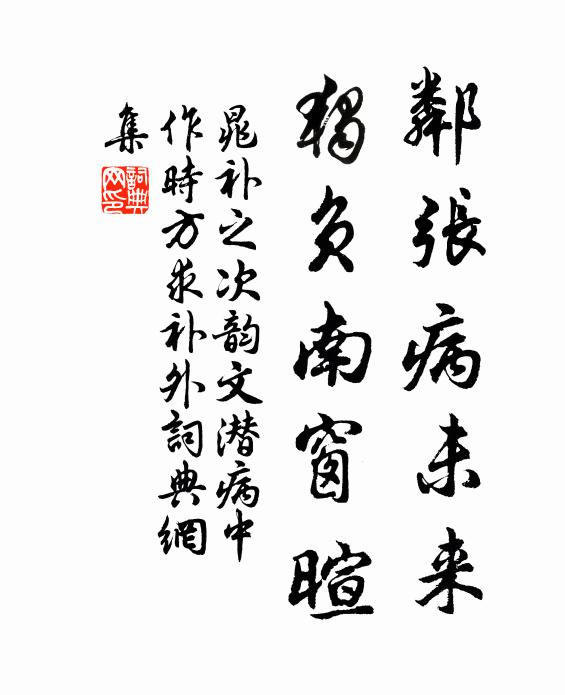 鄰張病未来
獨負南窗暄
晁补之次韵文潜病中
作時方求补外詞典網
集
詞典
网印